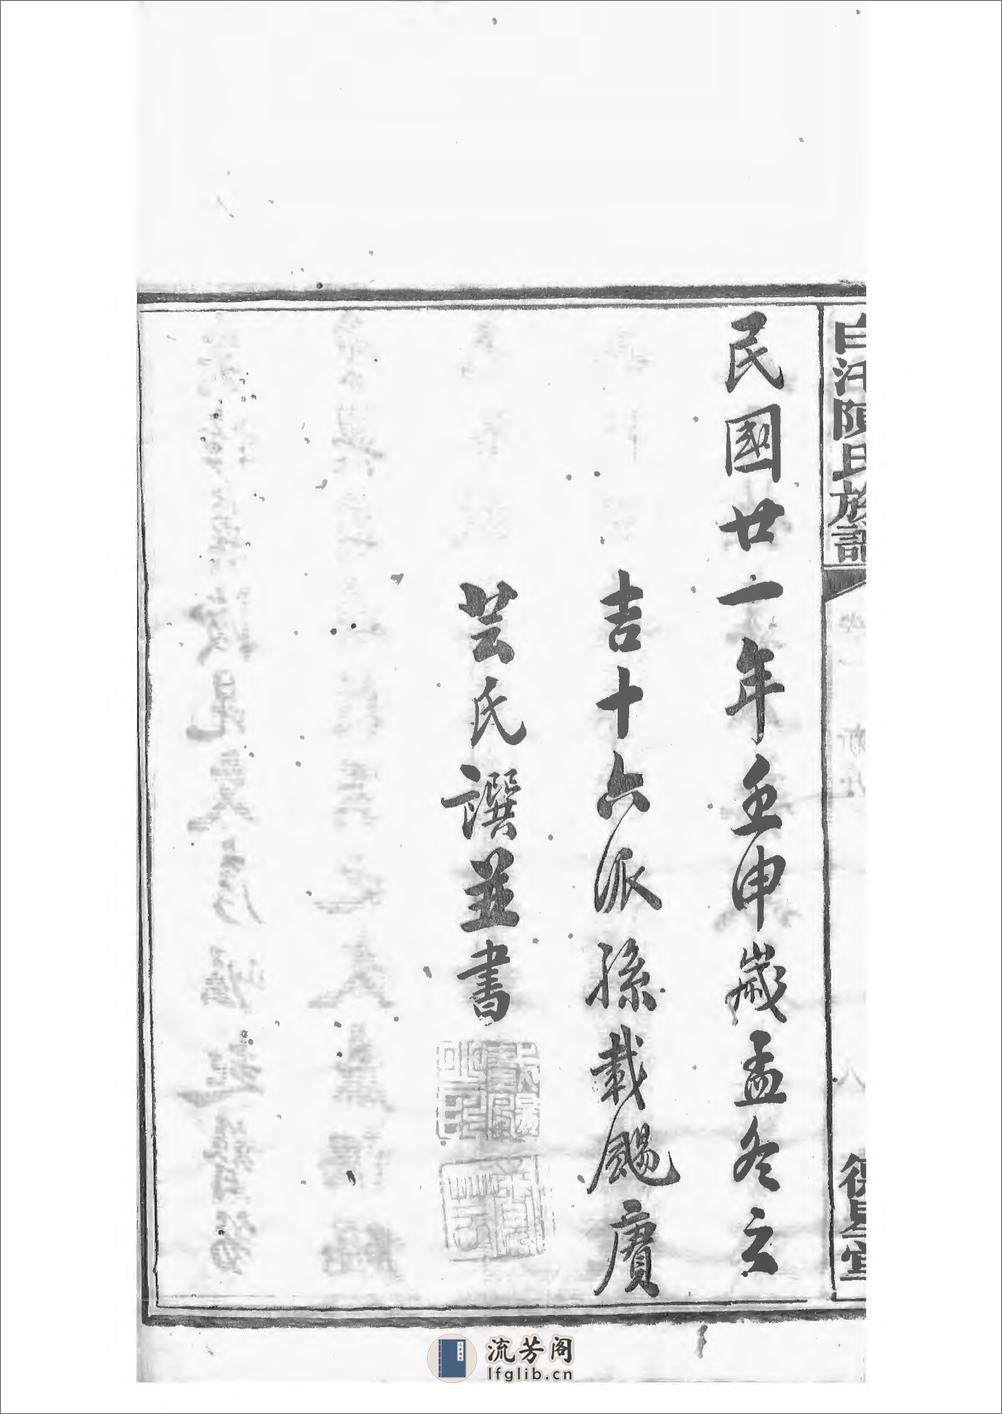 民國廿一年壬申歲孟冬立
吉十六派孫載颺賡
芸氏譔並書
陳氏族譜
德星堂
流芳阁
lfglib.cn